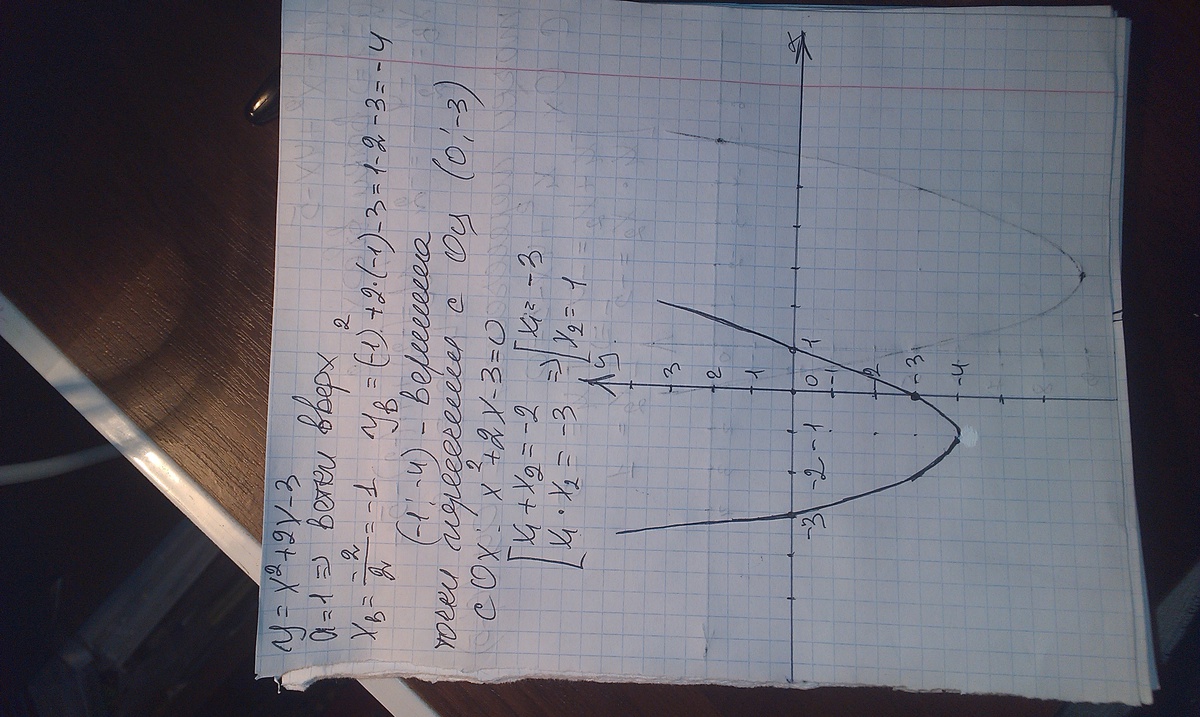 y = x²+2x-3
a=1 ⇒ ветки вверх
x_B = -2/2 = -1   y_B = (-1)²+2·(-1)-3=1-2-3=-4
(-1;-4) - вершина
точки пересечения с Oy (0;-3)
с Ox: x²+2x-3=0
[x₁+x₂=-2 ⇒ [x₁=-3
[x₁·x₂=-3 [x₂=1
y
3
2
1
-3 -2 -1 0 1 x
-1
-2
-3
-4